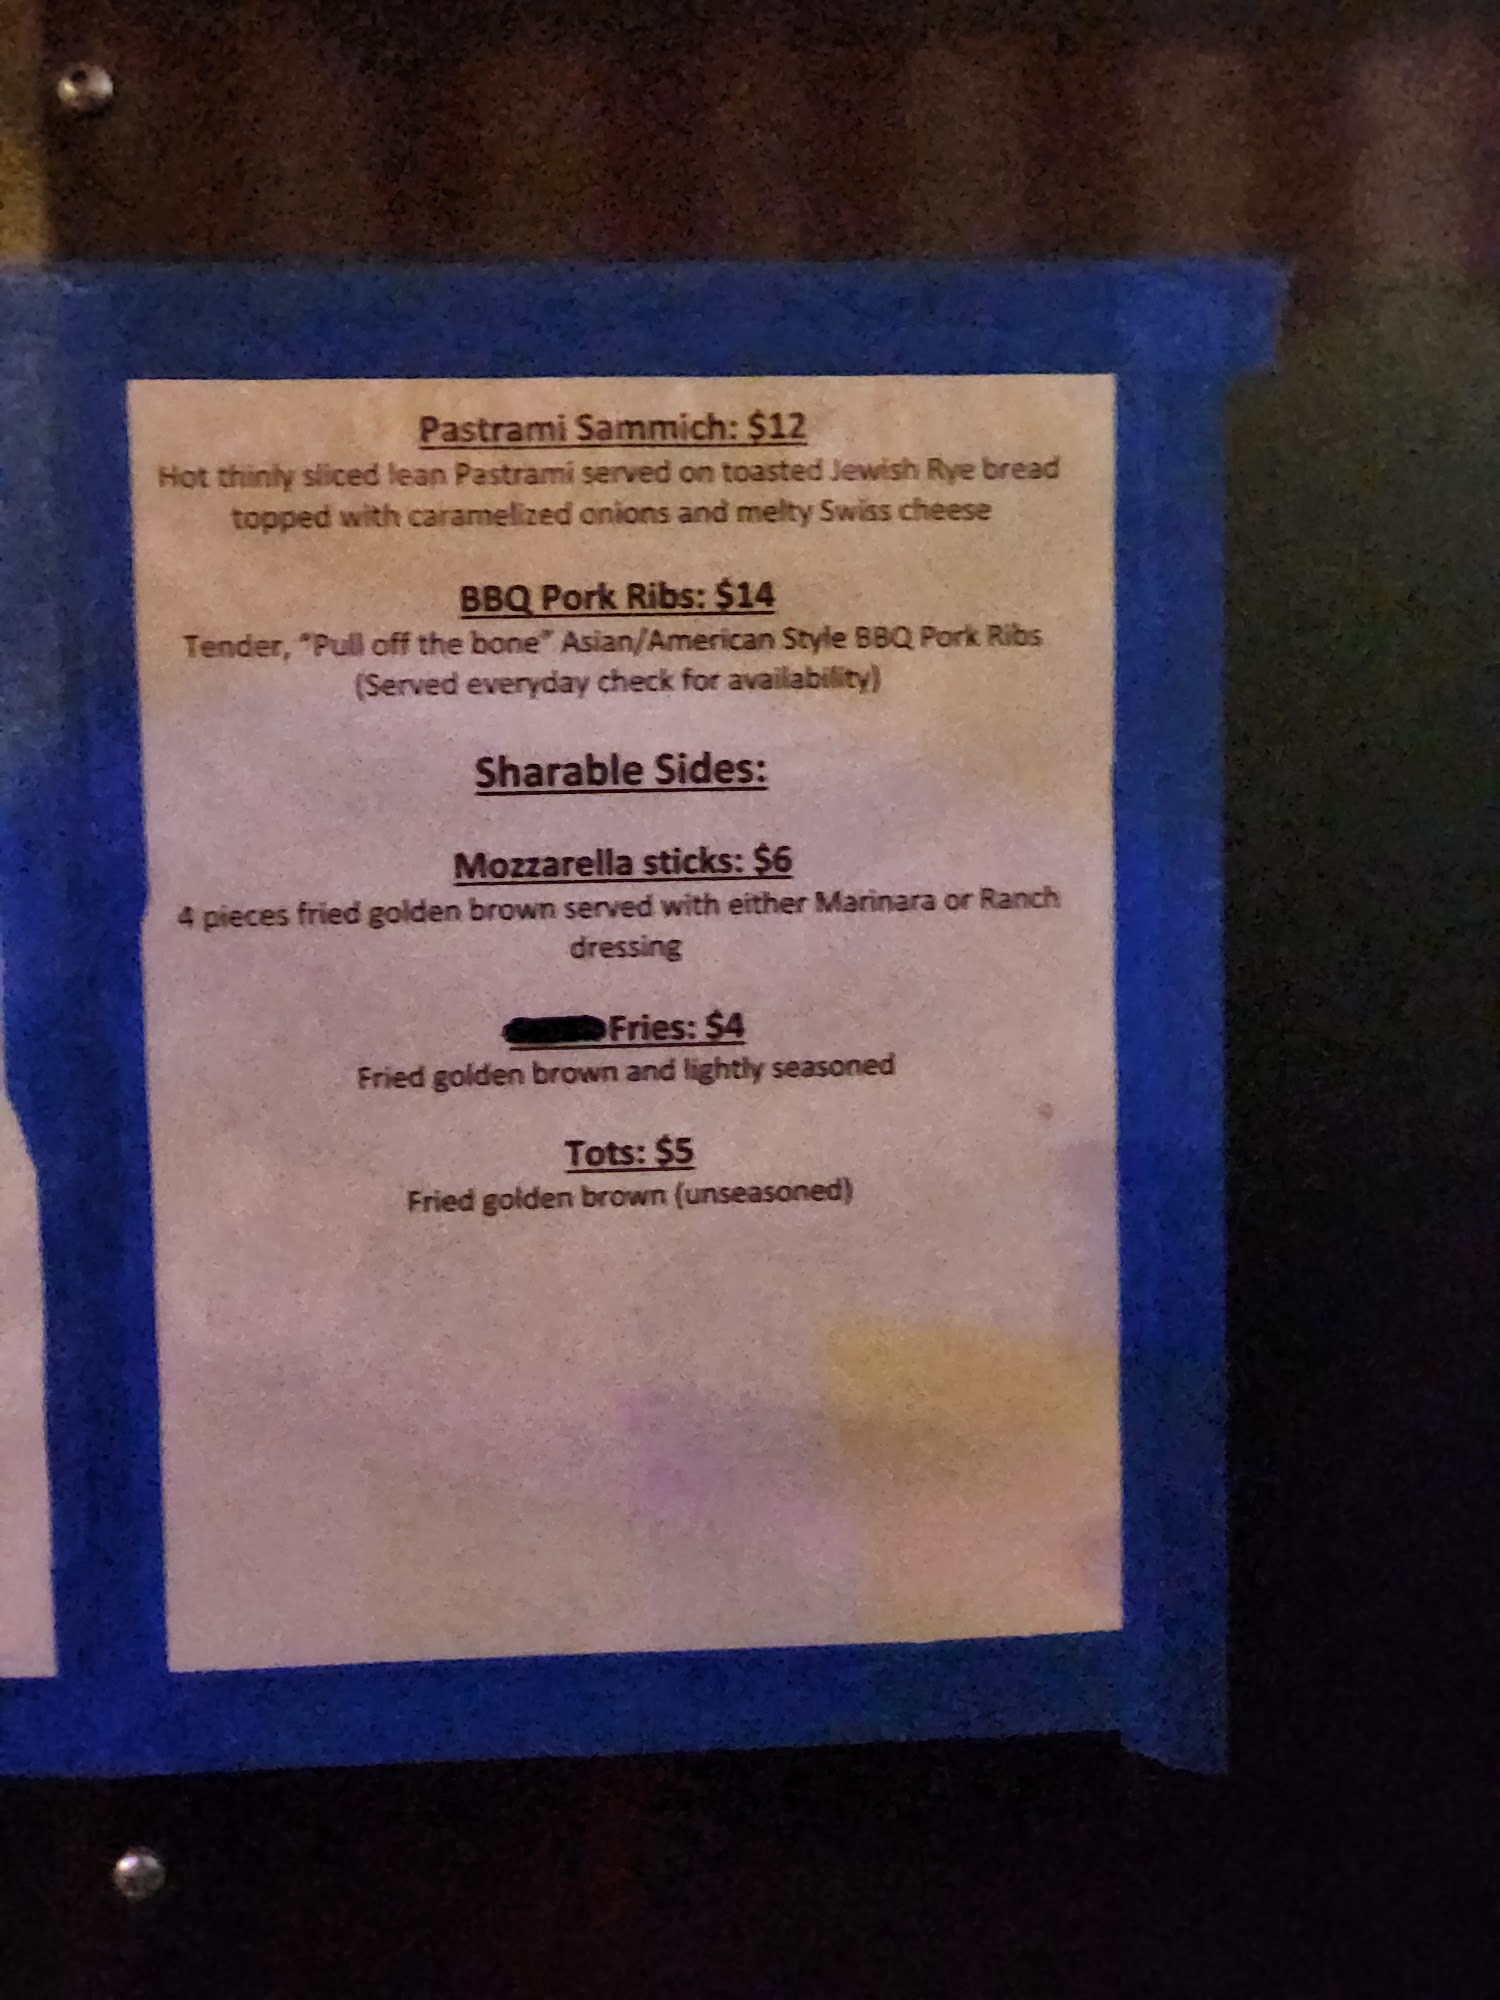 Pastrami Sammich: $12
Hot thinly sliced lean Pastrami served on toasted Jewish Rye bread
topped with caramelized onions and melty Swiss cheese
BBQ Pork Ribs: $14
Tender, "Pull off the bone" Asian/American Style BBQ Pork Ribs
(Served everyday check for availability)
Sharable Sides:
Mozzarella sticks: $6
4 pieces fried golden brown served with either Marinara or Ranch
dressing
Fries: $4
Fried golden brown and lightly seasoned
Tots: $5
Fried golden brown (unseasoned)